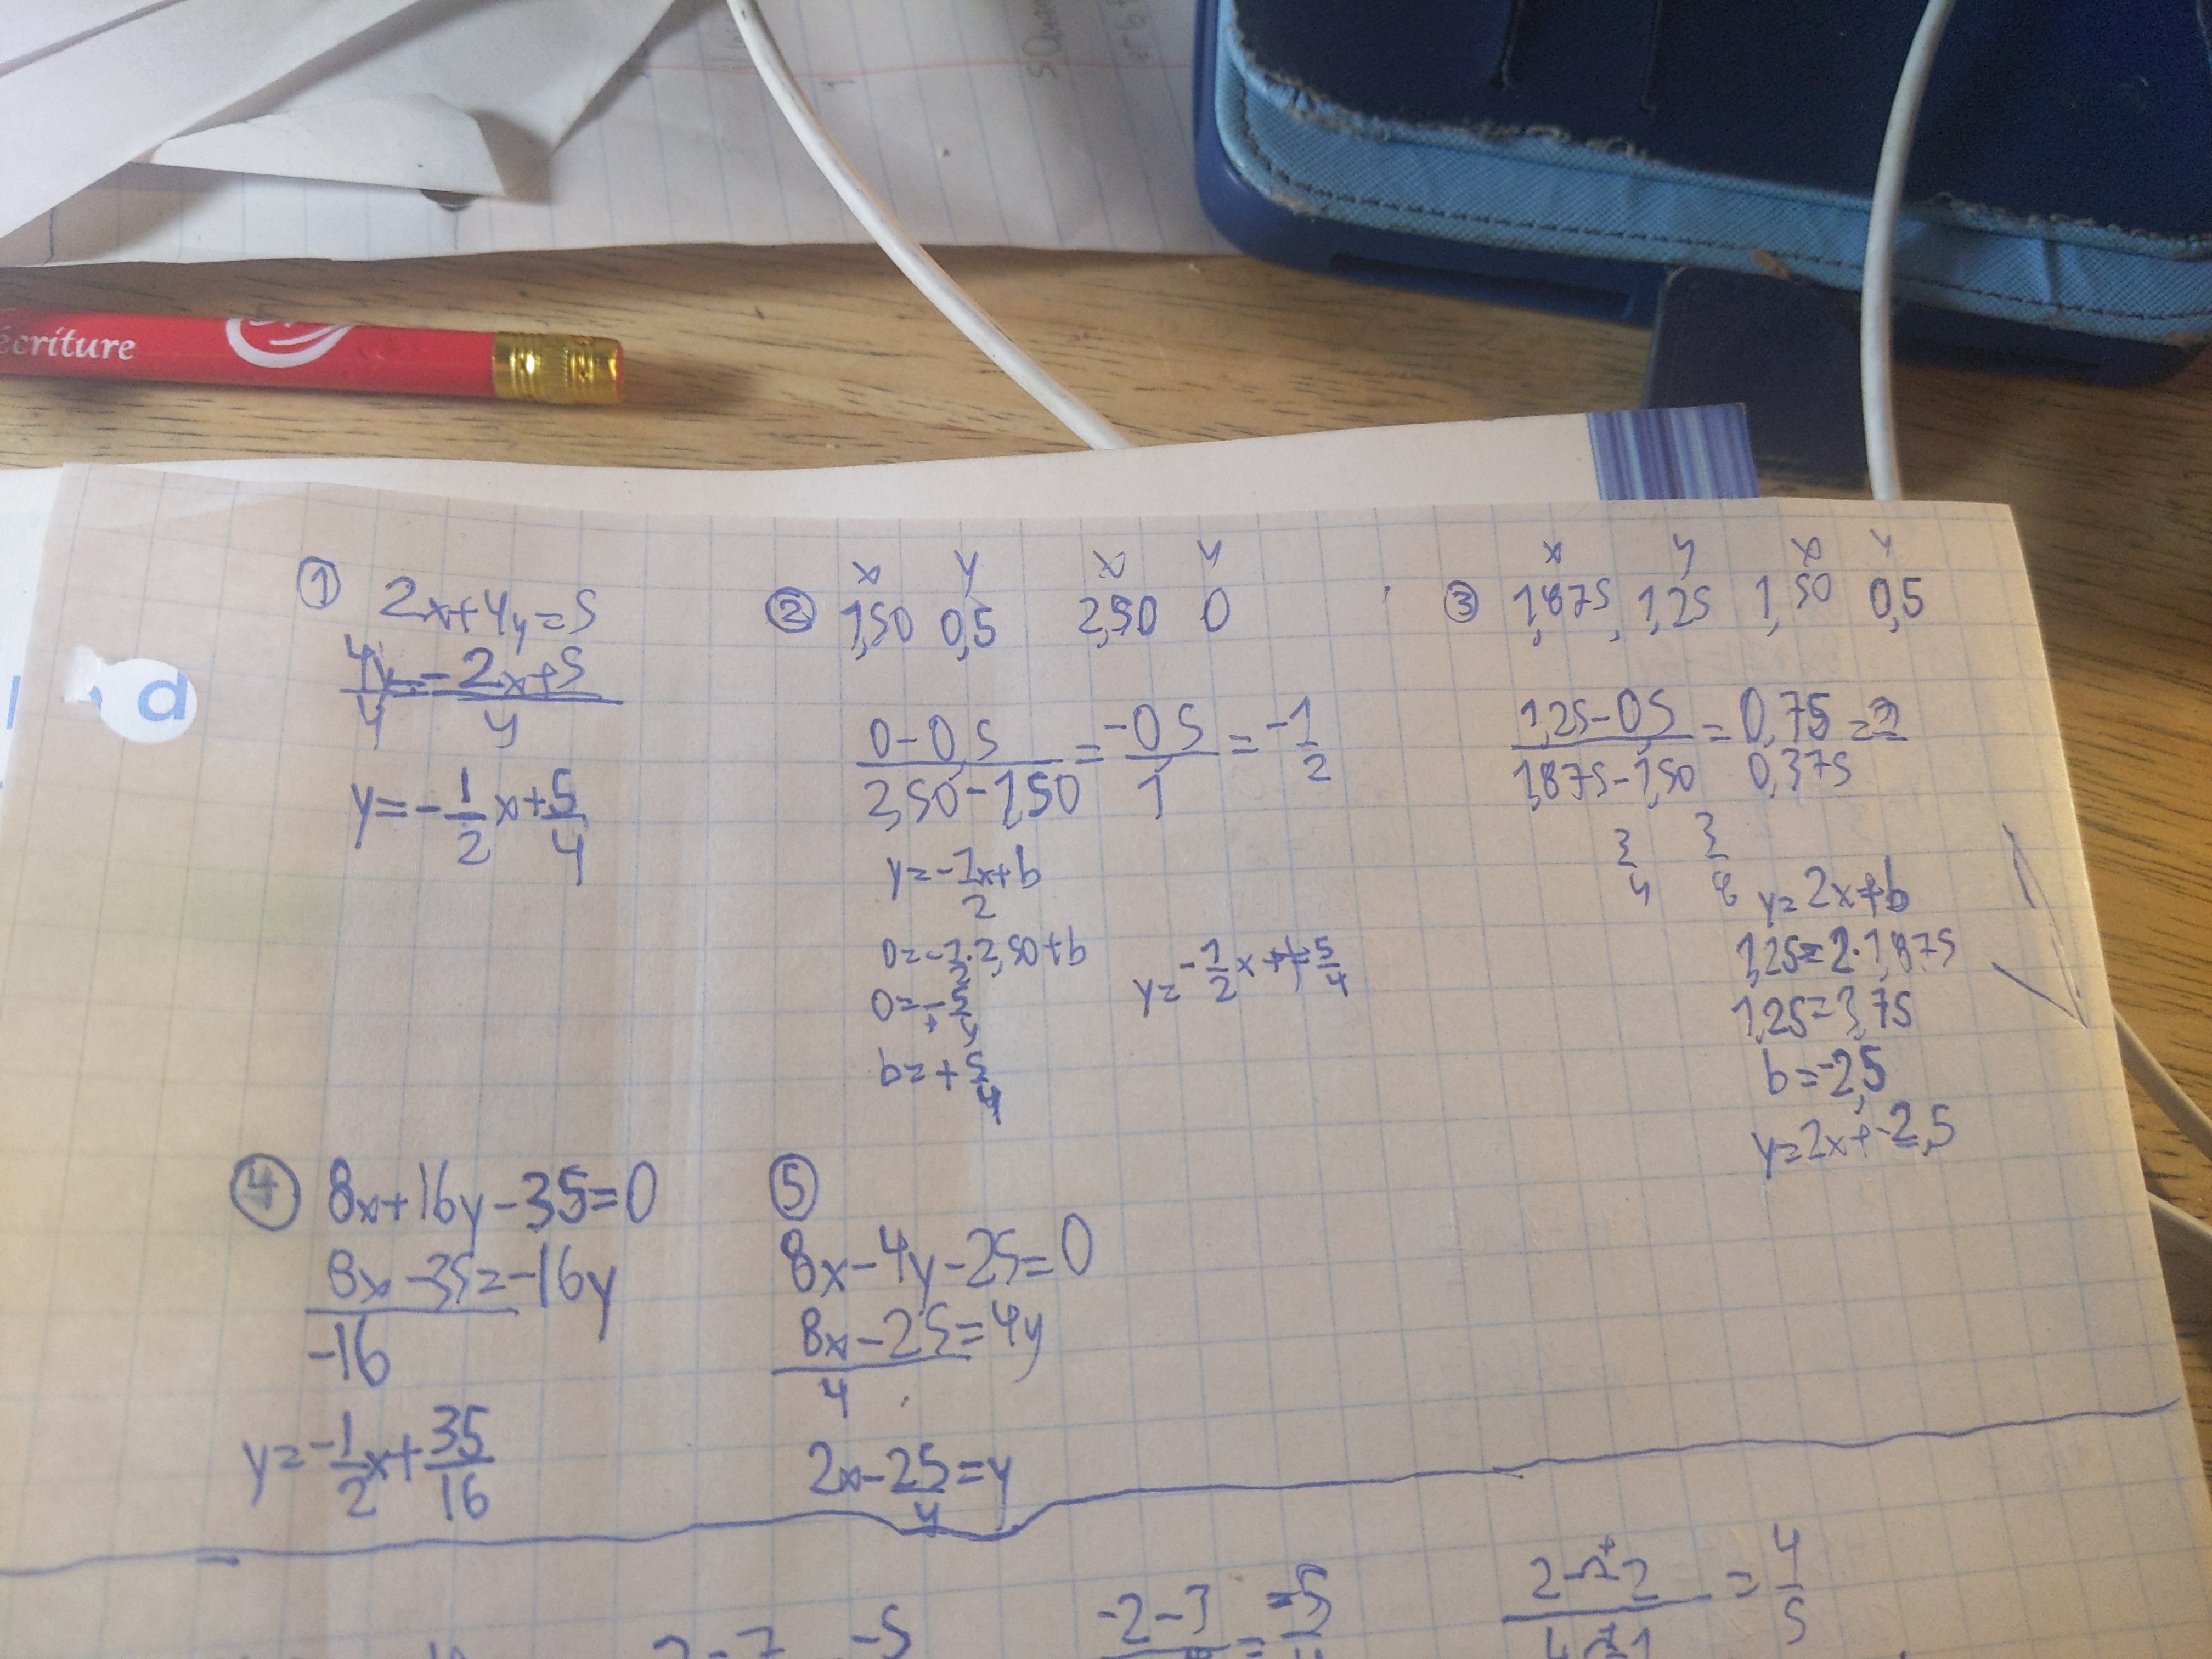 écriture
d
① 2x+4y=5
4y=-2x+5
4 4
y=-1/2x+5/4
② x y x y
1,50 0,5 2,50 0
0-0,5/2,50-1,50=-0,5/1=-1/2
y=-1/2x+b
0=-1/2·2,50+b
b=+5/4
y=-1/2x+5/4
③ x y x y
1,875, 1,25 1,50 0,5
1,25-0,5/1,875-1,50=0,75/0,375=2
3/4 3/8
y=2x+b
1,25=2·1,875
1,25=3,75
b=-2,5
y=2x+-2,5
④ 8x+16y-35=0
8x-35=-16y
-16
y=-1/2x+35/16
⑤
8x-4y-25=0
8x-25=4y
4
2x-25/4=y
-2-3 =-5
2-+2 =4/5
2-7 -5